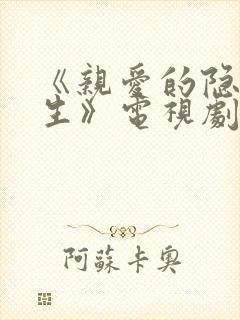 《親愛的隐
生》電視劇
阿蘇卡奥